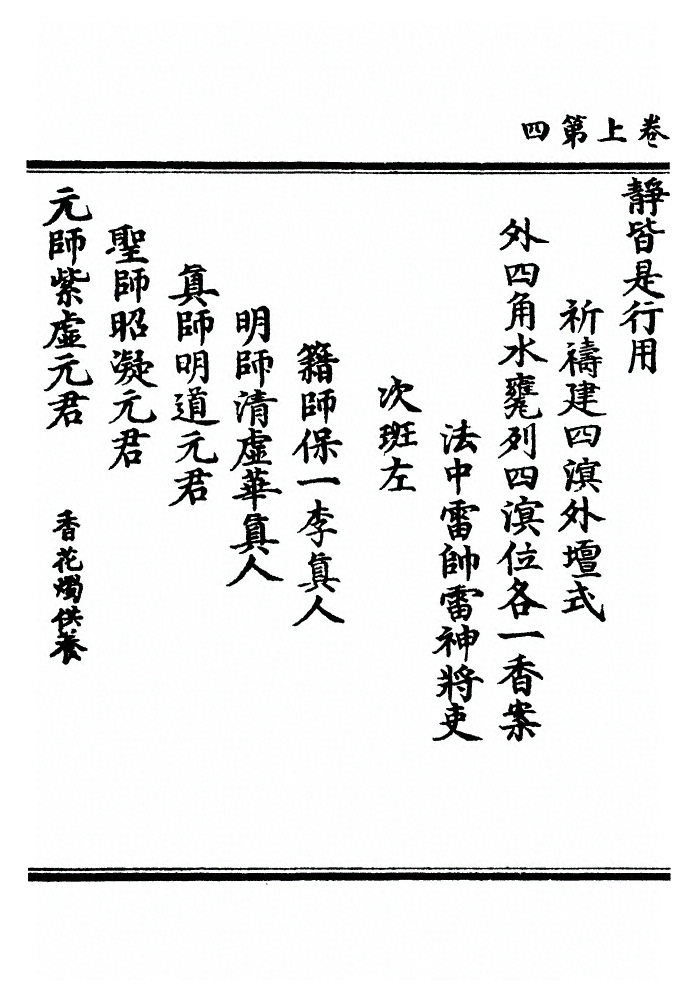 卷上第四
靜皆是行用
祈禱建四溟外壇式
外四角水甕列四溟位各一香案
法中雷帥雷神將吏
次班左
籍師保一李真人
明師清虛華真人
真師明道元君
聖師昭凝元君
元師紫虛元君　香花燭供養